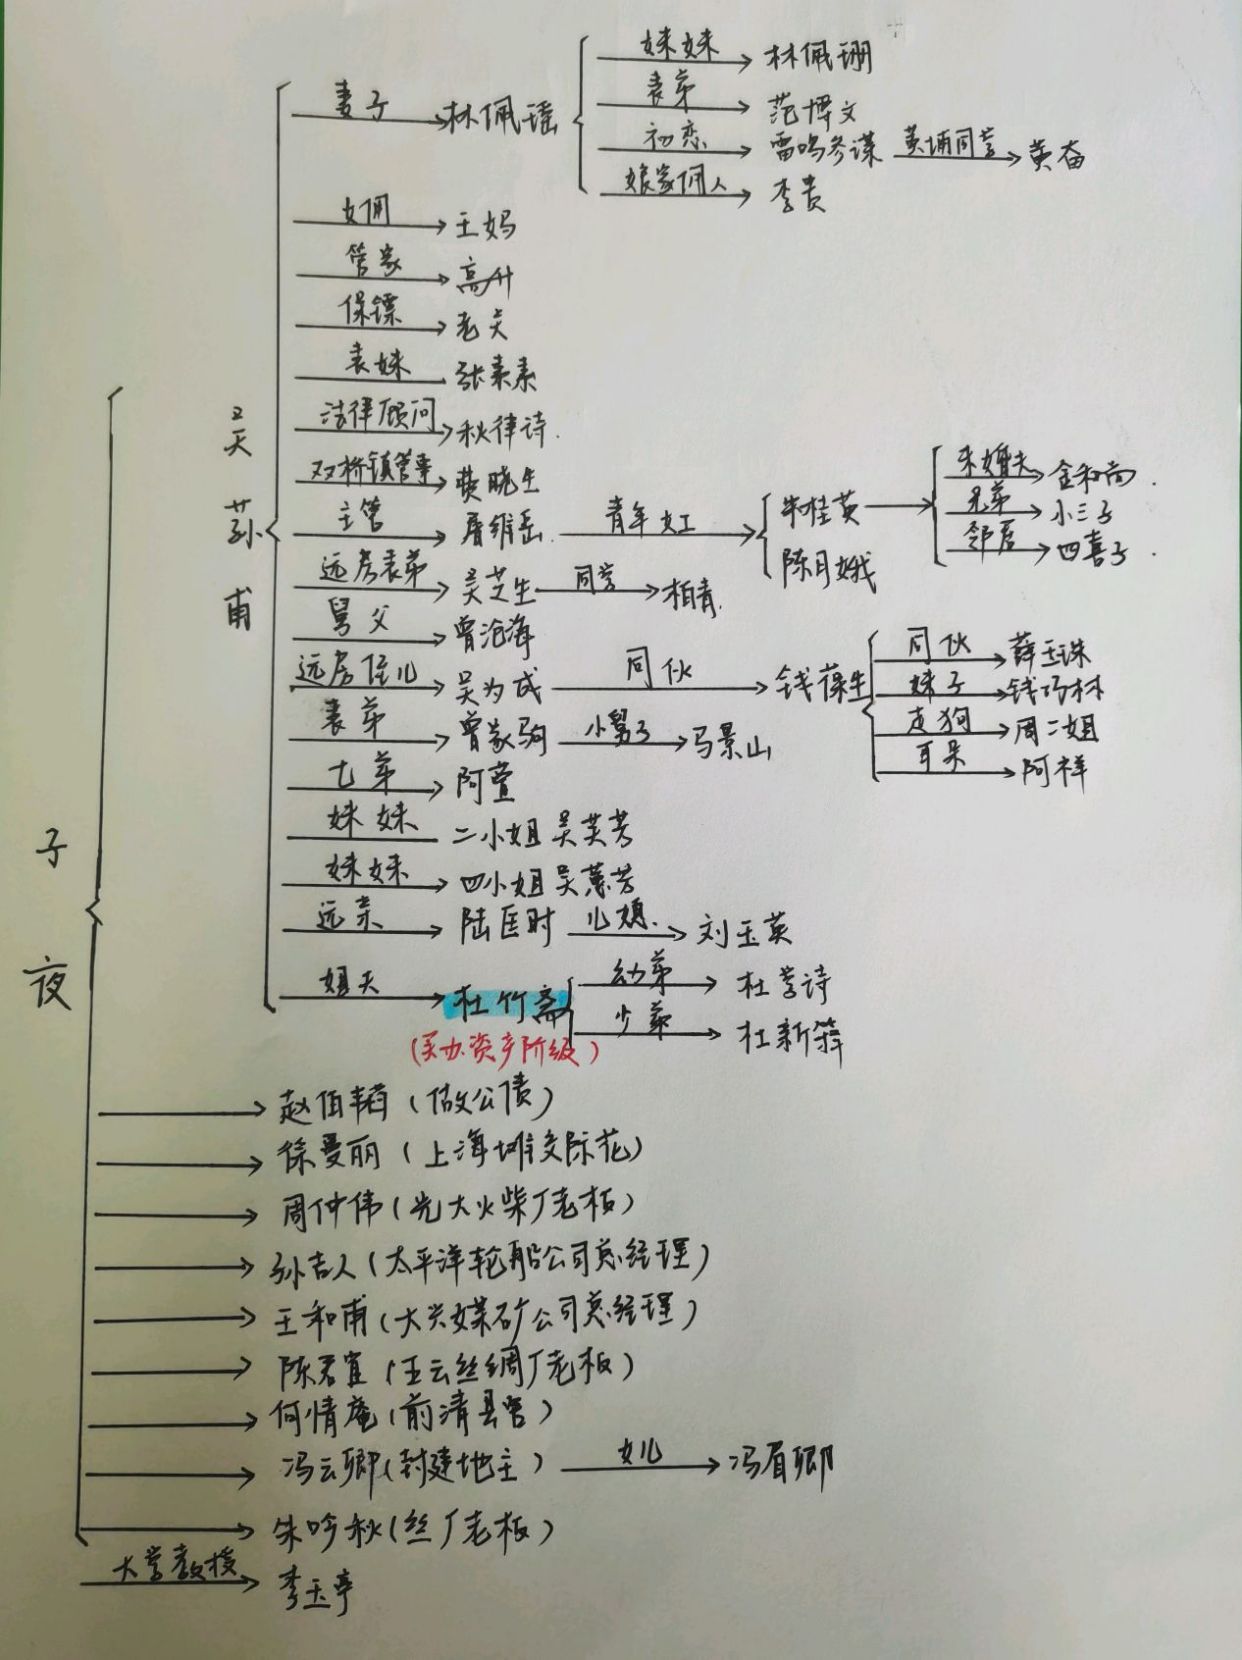 子夜
吴荪甫
妻子 林佩瑶
妹妹 林佩珊
表弟 范博文
初恋 雷鸣参谋 黄埔同学 黄奋
娘家佣人 李贵
女佣 王妈
管家 高升
保镖 老关
表妹 张素素
法律顾问 秋律诗
双桥镇管事 费晓生
主管 屠维岳 青年女工 朱桂英 未婚夫 金和尚
兄弟 小三子
邻居 四喜子
陈月娥
远房表弟 吴芝生 同学 柏青
舅父 曾沧海
远房侄儿 吴为成 同伙 钱葆生 同伙 薛宝珠
妹子 钱巧林
走狗 周二姐
耳朵 阿祥
表弟 曾家驹 小舅子 马景山
七弟 阿萱
妹妹 二小姐 吴芙芳
妹妹 四小姐 吴蕙芳
远亲 陆匡时 儿媳 刘玉英
姐夫 杜竹斋 幼弟 杜学诗
少爷 杜新箨
(买办资产阶级)
赵伯韬(做公债)
徐曼丽(上海滩交际花)
周仲伟(光大火柴厂老板)
孙吉人(太平洋轮船公司总经理)
王和甫(大兴煤矿公司总经理)
陈君宜(五云丝绸厂老板)
何情庵(前清县官)
冯云卿(封建地主) 女儿 冯眉卿
朱吟秋(丝厂老板)
大学教授 李玉亭